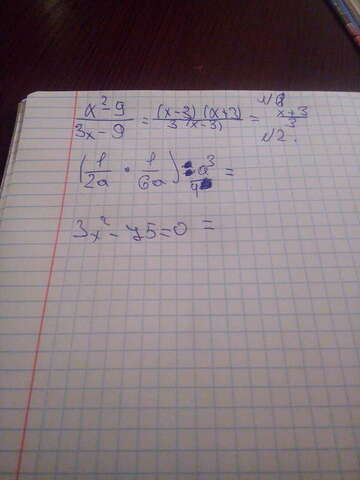 N1
(x²-9)/(3x-9) = ((x-3)(x+3))/(3(x-3)) = (x+3)/3
N2.
(1/2a · 1/6a) · a³/4 =
3x² - 75=0 =